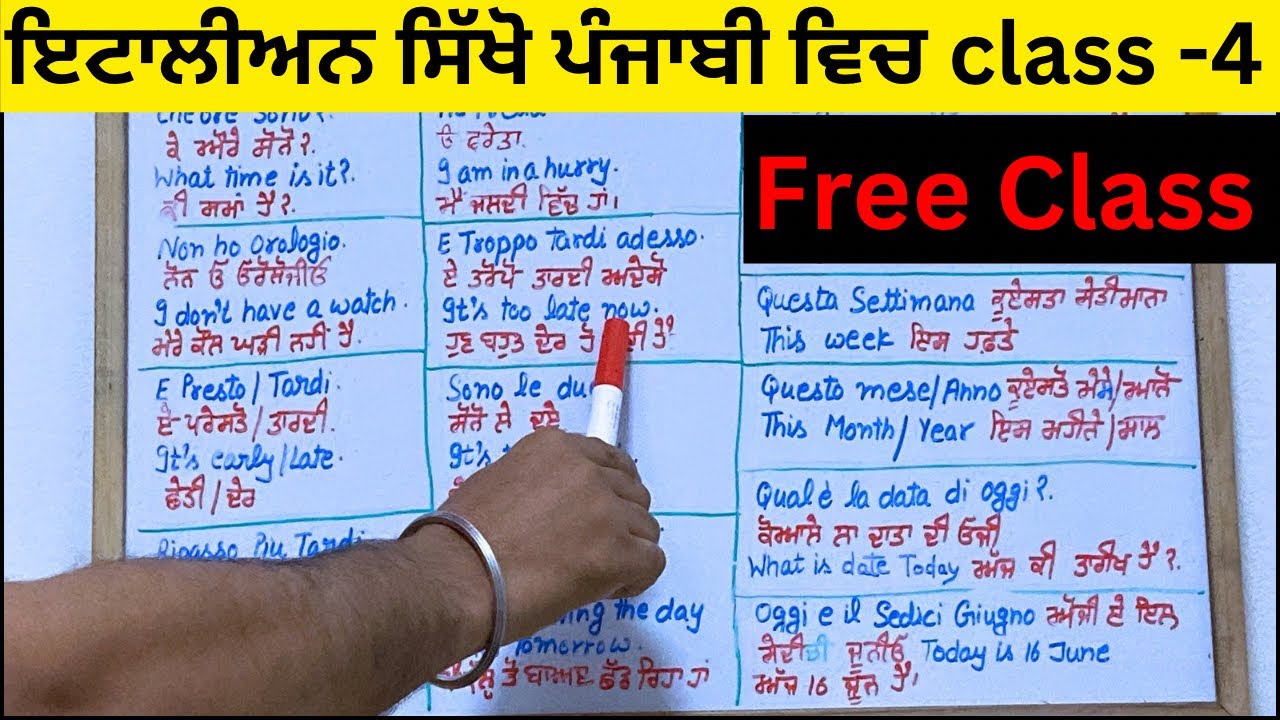 ਇਟਾਲੀਅਨ ਸਿੱਖੋ ਪੰਜਾਬੀ ਵਿਚ class -4
Free Class
ਕੇ ਔਰੇ ਸੋਨੋ?
What time is it?.
ਕੀ ਸਮਾਂ ਹੈ?.
Non ho orologio.
ਨੋਨ ਓ ਓਰੋਲੋਜੀਓ
I don't have a watch.
ਮੇਰੇ ਕੋਲ ਘੜੀ ਨਹੀਂ ਹੈ.
E Presto / Tardi.
ਏ ਪਰੇਸਤੋ / ਤਾਰਦੀ.
It's early/Late.
ਛੇਤੀ / ਦੇਰ
Ripasso Piu Tardi
ਓ ਫਰੇਤਾ.
I am in a hurry.
ਮੈਂ ਜਲਦੀ ਵਿੱਚ ਹਾਂ।
E Troppo tardi adesso.
ਏ ਤਰੋਪੋ ਤਾਰਦੀ ਅਦੇਸੋ
It's too late now.
ਹੁਣ ਬਹੁਤ ਦੇਰ ਹੈ
Sono le
ਸੋਨੋ ਲੇ ਦੂਏ
It's
the day
tomorrow.
ਤੋਂ ਬਾਅਦ ਛੱਡ ਰਿਹਾ ਹਾਂ
Questa Settimana ਕੁਏਸਤਾ ਸੇਤੀਮਾਨਾ
This week ਇਸ ਹਫ਼ਤੇ
Questo mese/Anno ਕੁਏਸਤੋ ਮੇਸੇ/ਆਨੋ
This Month/ Year ਇਸ ਮਹੀਨੇ /ਸਾਲ
Qual è la data di oggi?.
ਕੋਆਲੇ ਲਾ ਦਾਤਾ ਦੀ ਓਜੀ
What is date Today ਅੱਜ ਕੀ ਤਾਰੀਖ ਹੈ?.
Oggi e il Sedici Giugno ਅੋਜੀ ਏ ਇਲ
ਸੇਦੀਚੀ ਜੂਨੀਓ Today is 16 June
ਅੱਜ 16 ਜੂਨ ਹੈ।